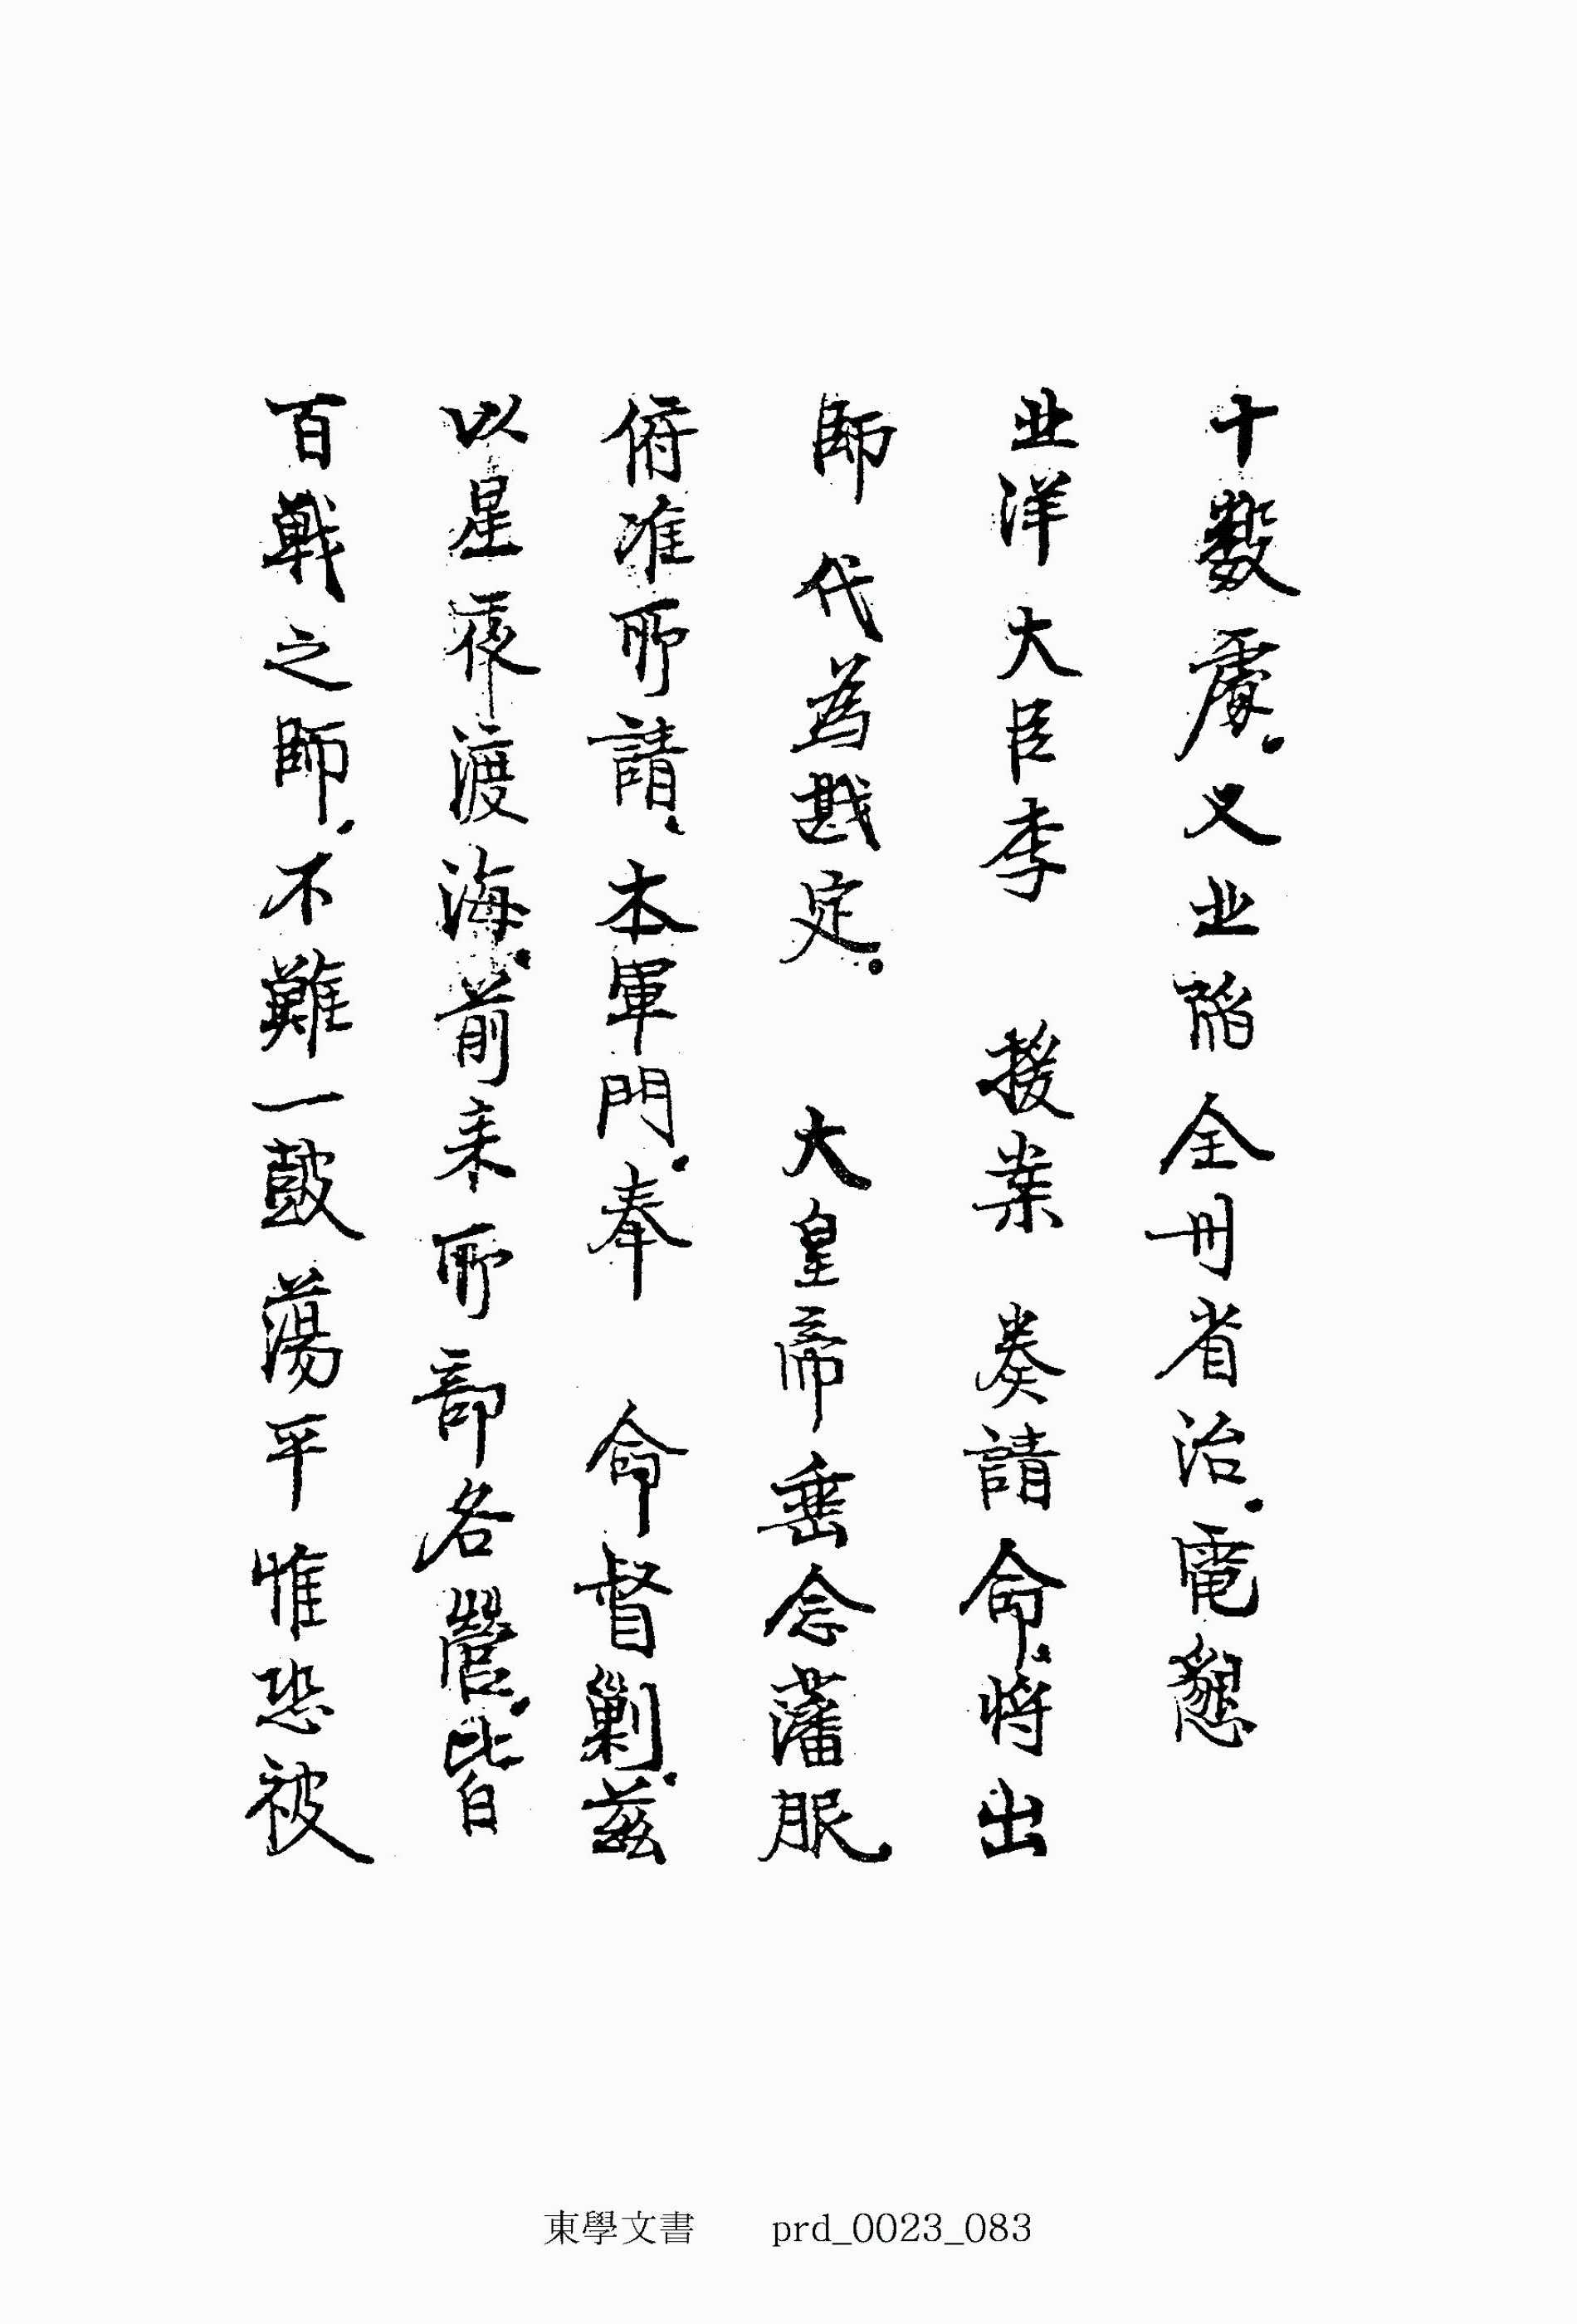 十數處又北陷全州省治電懇
北洋大臣李 援案 奏請命將出
師 代爲戡定 大皇帝垂念藩服
俯准所請本軍門奉 命督剿茲
以星夜渡海前來所部各營皆
百戰之師不難一鼓蕩平惟恐被
東學文書 prd_0023_083